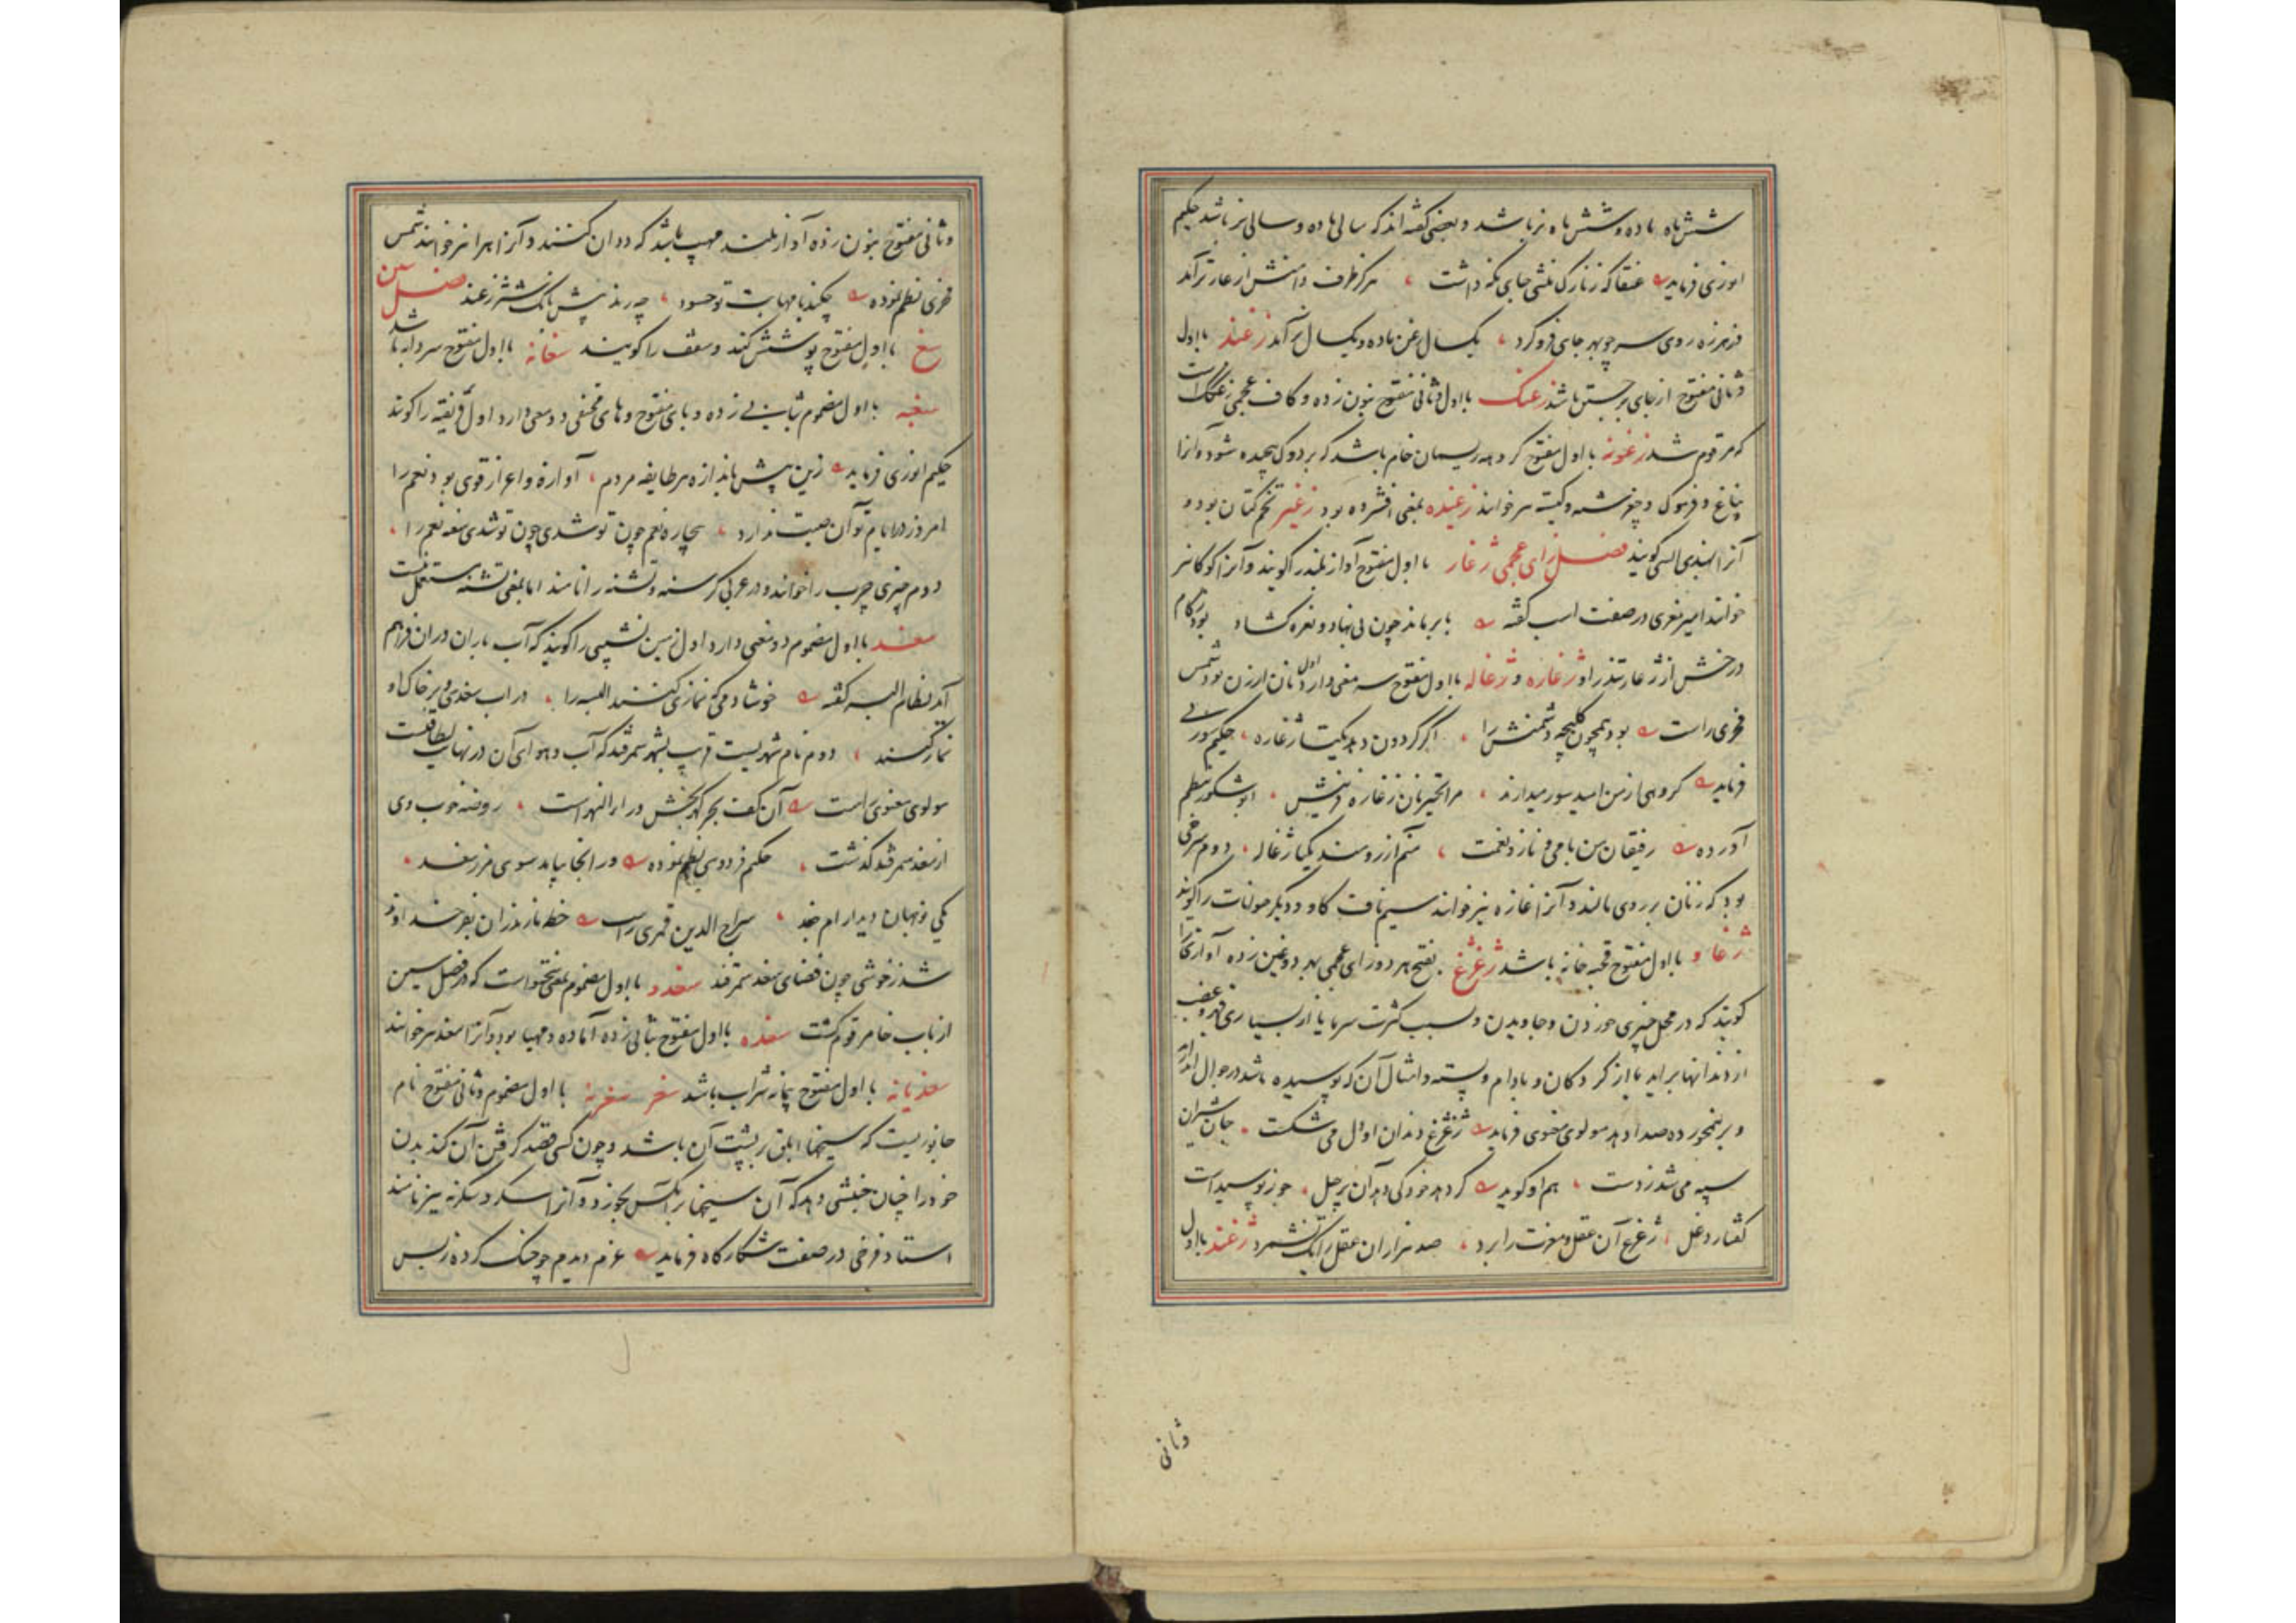 شش ماه ماده و شش ماه نر باشد و بعضی گفته اند که سالی ماده و سالی نر باشد حکیم
انوری فرماید عنقا که زنازکی منشی جای نگه داشت هر گز طرف دامنش از عار تر آمد
روی سر چو بهر جای فرو کرد یکسال زغن ماده و یکسال نر آمد زغند بااول
وثانی مفتوح از جای برجستن باشد زغنک بااول وثانی مفتوح بنون زده و کاف عجمی
که مرقوم شد زغونه بااول مفتوح گروهه ریسمان خام باشد که بر دوک پیچیده شود و آنرا
و فرموک و نیز خوانند زغیده بمعنی افشرده بود زغیر تخم کتان بود و
آنرا بهندی السی گویند فصل زای عجمی ژغار بااول مفتوح آواز بلند را گویند و آنرا نیز
خوانند امیر معزی در صفت اسب گفته با ببر ماند چون پی نهاد و نعره گشاد بود
درخش از ژغار تندر او ژغاره و ژغاله بااول مفتوح سه معنی دارد اول نان ارزن بود شمس
فخری راست بود همچون کلیچه دشمنش را اگر گردون دهد یکتا ژغاره حکیم سوزنی
فرماید گروهی از من امید سور میدارند ابوشکور نظم
آورده رفیقان من با می و ناز و نعمت منم آرزومند یکتا ژغاله دوم سرخی
بود که زنان بر روی مالند و آنرا غازه نیز خوانند سیم ناف گاو و دیگر حیوانات را گویند
ژغاو بااول مفتوح قحبه خانه باشد ژغژغ بفتح هر دو زای عجمی و هر دو غین زده آوازی را
گویند که در محل چیزی خوردن و جاویدن و بسبب کثرت سرما یا از بسیاری قهر و غضب
از دندانها برآید یا از گردکان و بادام و پسته و امثال آن که پوسیده باشد در جوال
و برهم خورده صدا دهد مولوی معنوی فرماید ژغژغ دندان او دل می شکست جان شیران
سیه می شد ز دست هم او گوید گر دهد خود کی دهد آن پر حیل جوز پوسیدست
گفتار دغل ژغژغ آن عقل و مغزت را برد صد هزاران عقل را یک نشمرد ژغند بااول
وثانی
وثانی مفتوح بنون زده آواز بلند مهیب باشد که ددان کنند و آنرا نیز خوانند شمس
فخری نظم نموده چکند با مهابت تو حسود چه زند پیش بانگ شیر زغند فصل سین
سغ بااول مفتوح پوشش گنبد و سقف را گویند سغانه بااول مفتوح سردابه باشد
سغبه بااول مضموم بثانی زده و بای مفتوح و های مختفی دو معنی دارد اول فریفته را گویند
حکیم انوری فرماید زین پیش باندازه هر طایفه مردم آوازه و اعزاز قوی بود نعم را
امروز در ایام تو آن صیت ندارد بیچاره نعم چون تو شدی چون تو شدی سغبه نعم را
دوم چیزی چرب را خوانند و در عربی گرسنه و تشنه را نامند اما بمعنی تشنه مستعمل نیست
سغد بااول مضموم دو معنی دارد اول زمین نشیبی را گویند که آب باران در آن فراهم
آید نظام البسه گفته خوشا دمی که نمازی کنند البسه را در آب سغدی و بر خاک او
نماز کنند دوم نام شهریست قریب بشهر سمرقند که آب و هوای آن در نهایت لطافتست
مولوی معنوی راست آن کف بحر گهر بخش ورا النهر است روضه خوب وی
از سغد سمرقند گذشت حکیم فردوسی نظم نموده ور آنجا بیامد سوی مرز سغد
یکی نو جهان دید آرام جغد سراج الدین قمری راست خطه مازندران
شد ز خوشی چون فضای سغد سمرقند سغدو بااول مضموم بمعنی است که در فصل سین
از باب خا مرقوم گشت سغده بااول مفتوح بثانی زده آماده و مهیا بود و آنرا سغد نیز خوانند
سغدیانه بااول مفتوح پیمانه شراب باشد سغر سغرنه بااول مضموم وثانی مفتوح نام
جانوریست که سیخها ابلق بر پشت آن باشد و چون کسی قصد گرفتن آن کند بدن
خود را چنان جنبشی دهد که آن سیخها بر آنکس بخورد و آنرا اسگر و سگرنه نیز نامند
استاد فرخی در صفت شکارگاه فرماید غرم دیدم چو چنگ کرده ز بس